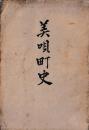 美唄町史